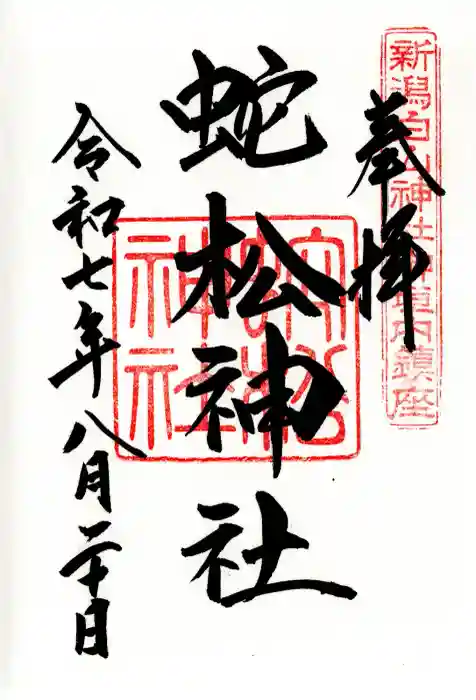 新潟白山神社御境内鎮座
奉拝
蛇松神社
蛇松神社
令和七年八月二十日